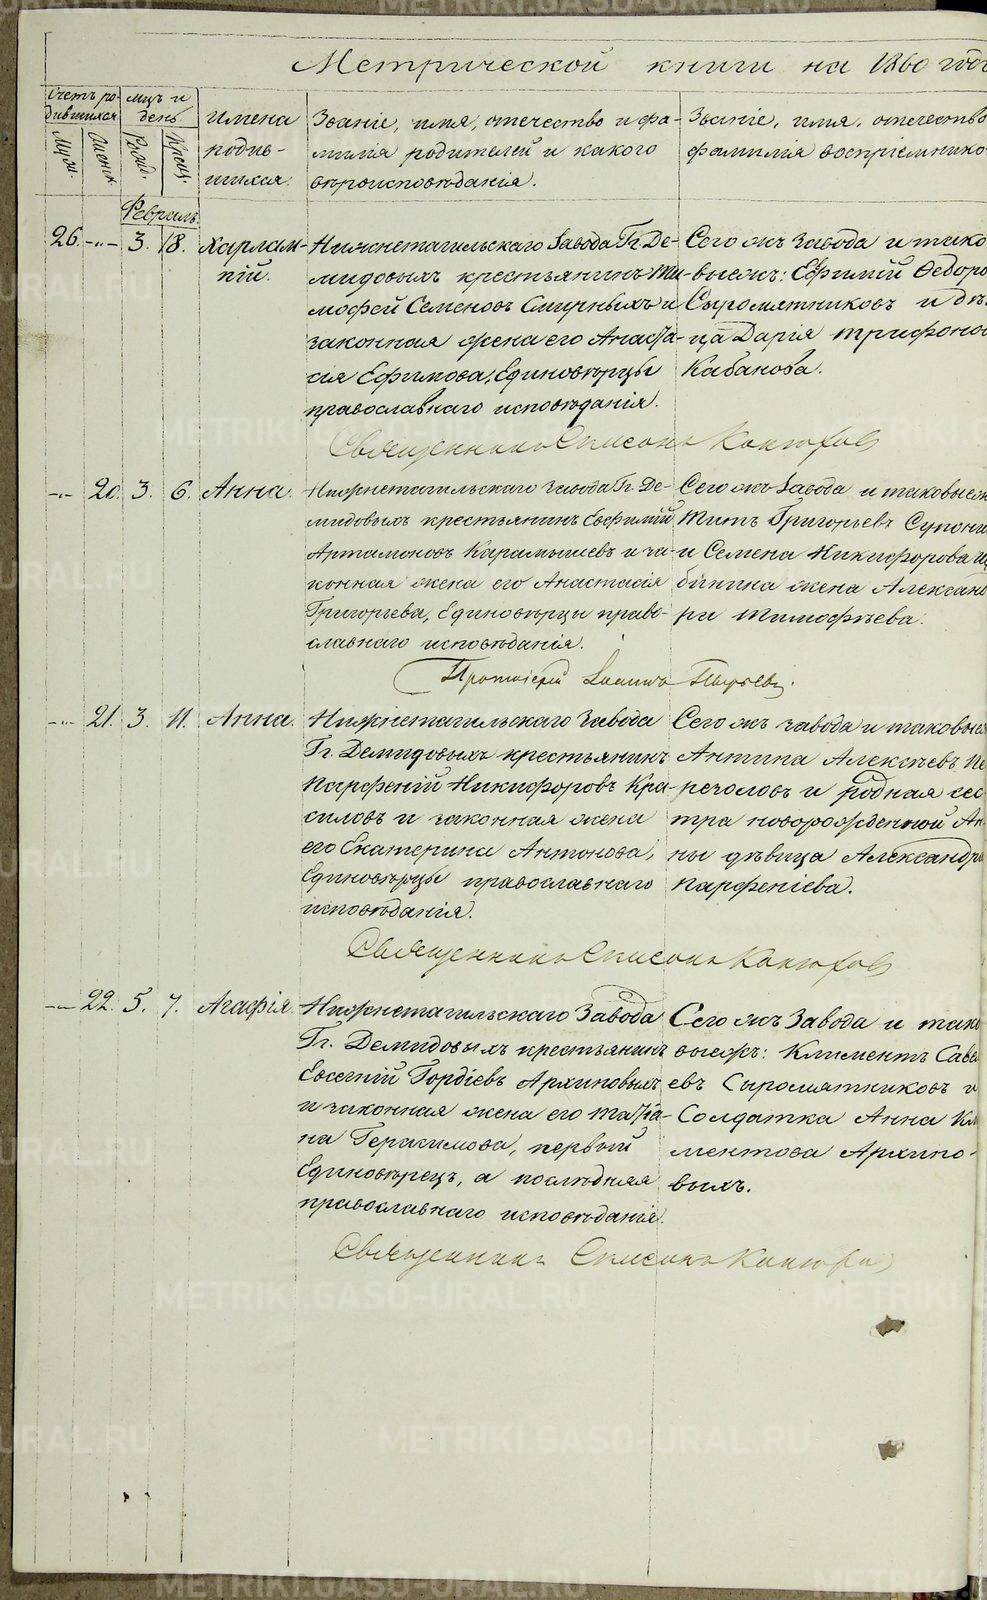 Метрической книги на 1860 годъ
Счетъ ро-
дившихся
Муж.
Женск.
мцъ и
день
Рожд.
Крещ.
имена
родив-
шихся.
Званіе, имя, отечество и фа-
милія родителей и какого
вѣроисповѣданія.
Званіе, имя, отечество
фамилія воспріемнико
Февраль.
26. -„- 3. 18. Харлам-
пій.
Нижнетагильскаго Завода Гг. Де-
мидовыхъ крестьянинъ Ти-
мофей Семеновъ Смирныхъ и
законная жена его Анаста-
сія Ефимова, Единовѣрцы
православнаго исповѣданія.
Сего жъ завода и тако
выежъ: Ефимій Ѳедоро
Сыромятниковъ и дѣ-
ца Дарія Трифоно
Кабанова.
Священникъ Симеонъ Конюхов
-„- 20. 3. 6. Анна.
Нижнетагильскаго завода Гг. Де-
мидовыхъ крестьянинъ Евфимій
Артамоновъ Карамышевъ и за-
конная жена его Анастасія
Григорьева, Единовѣрцы право-
славнаго исповѣданія.
Сего жъ Завода и таковыеж
Титъ Григорьевъ
и Семена Никифорова
жена Александ
ри Тимофѣева.
Протоіерей Іоаннъ Пырьевъ.
-„- 21. 3. 11. Анна.
Нижнетагильскаго Завода
Гг. Демидовыхъ крестьянинъ
Парфеній Никифоровъ Кра-
силовъ и законная жена
его Екатерина Антонова,
Единовѣрцы православнаго
исповѣданія.
Сего жъ завода и таковыеж
Антипа Алексѣевъ Пе
речоловъ и родная сес
тра новорожденной Ан
ны дѣвица Александра
Парфеніева.
Священникъ Симеонъ Конюхов
-„- 22. 5. 7. Агафія.
Нижнетагильскаго Завода
Гг. Демидовыхъ крестьянинъ
Евсегній Гордіевъ Архиповыхъ
и законная жена его Татіа-
на Герасимова, первый
Единовѣрецъ, а послѣдняя
православнаго исповѣданія.
Сего жъ Завода и тако
выежъ: Климентъ Саве
евъ Сыромятниковъ и
Солдатка Анна Кли
ментова Архипо-
выхъ.
Священникъ Симеонъ Конюхов
METRIKI.GASO-URAL.RU